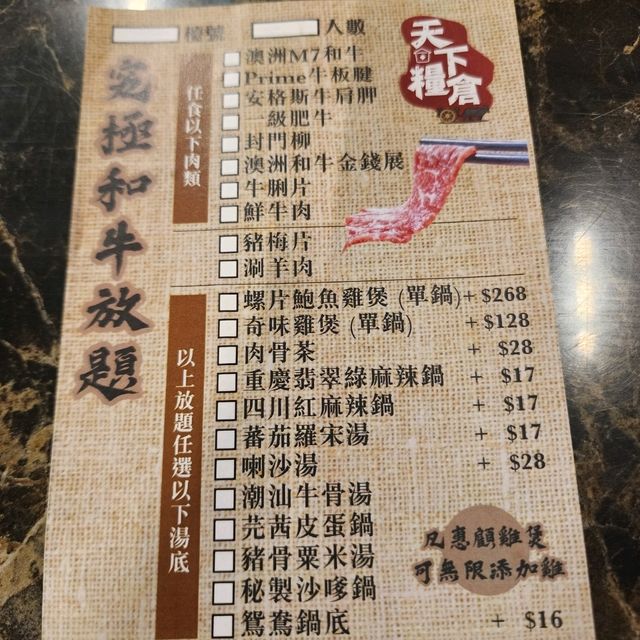 檯號
人數
天下糧倉
究極和牛放題
任食以下肉類
澳洲M7和牛
Prime牛板腱
安格斯牛肩胛
一級肥牛
封門柳
澳洲和牛金錢展
牛脷片
鮮牛肉
豬梅片
涮羊肉
以上放題任選以下湯底
螺片鮑魚雞煲 (單鍋)+ $268
奇味雞煲 (單鍋) + $128
肉骨茶 + $28
重慶翡翠綠麻辣鍋 + $17
四川紅麻辣鍋 + $17
蕃茄羅宋湯 + $17
喇沙湯 + $28
潮汕牛骨湯
芫茜皮蛋鍋
豬骨粟米湯
秘製沙嗲鍋
鴛鴦鍋底 + $16
凡惠顧雞煲
可無限添加雞